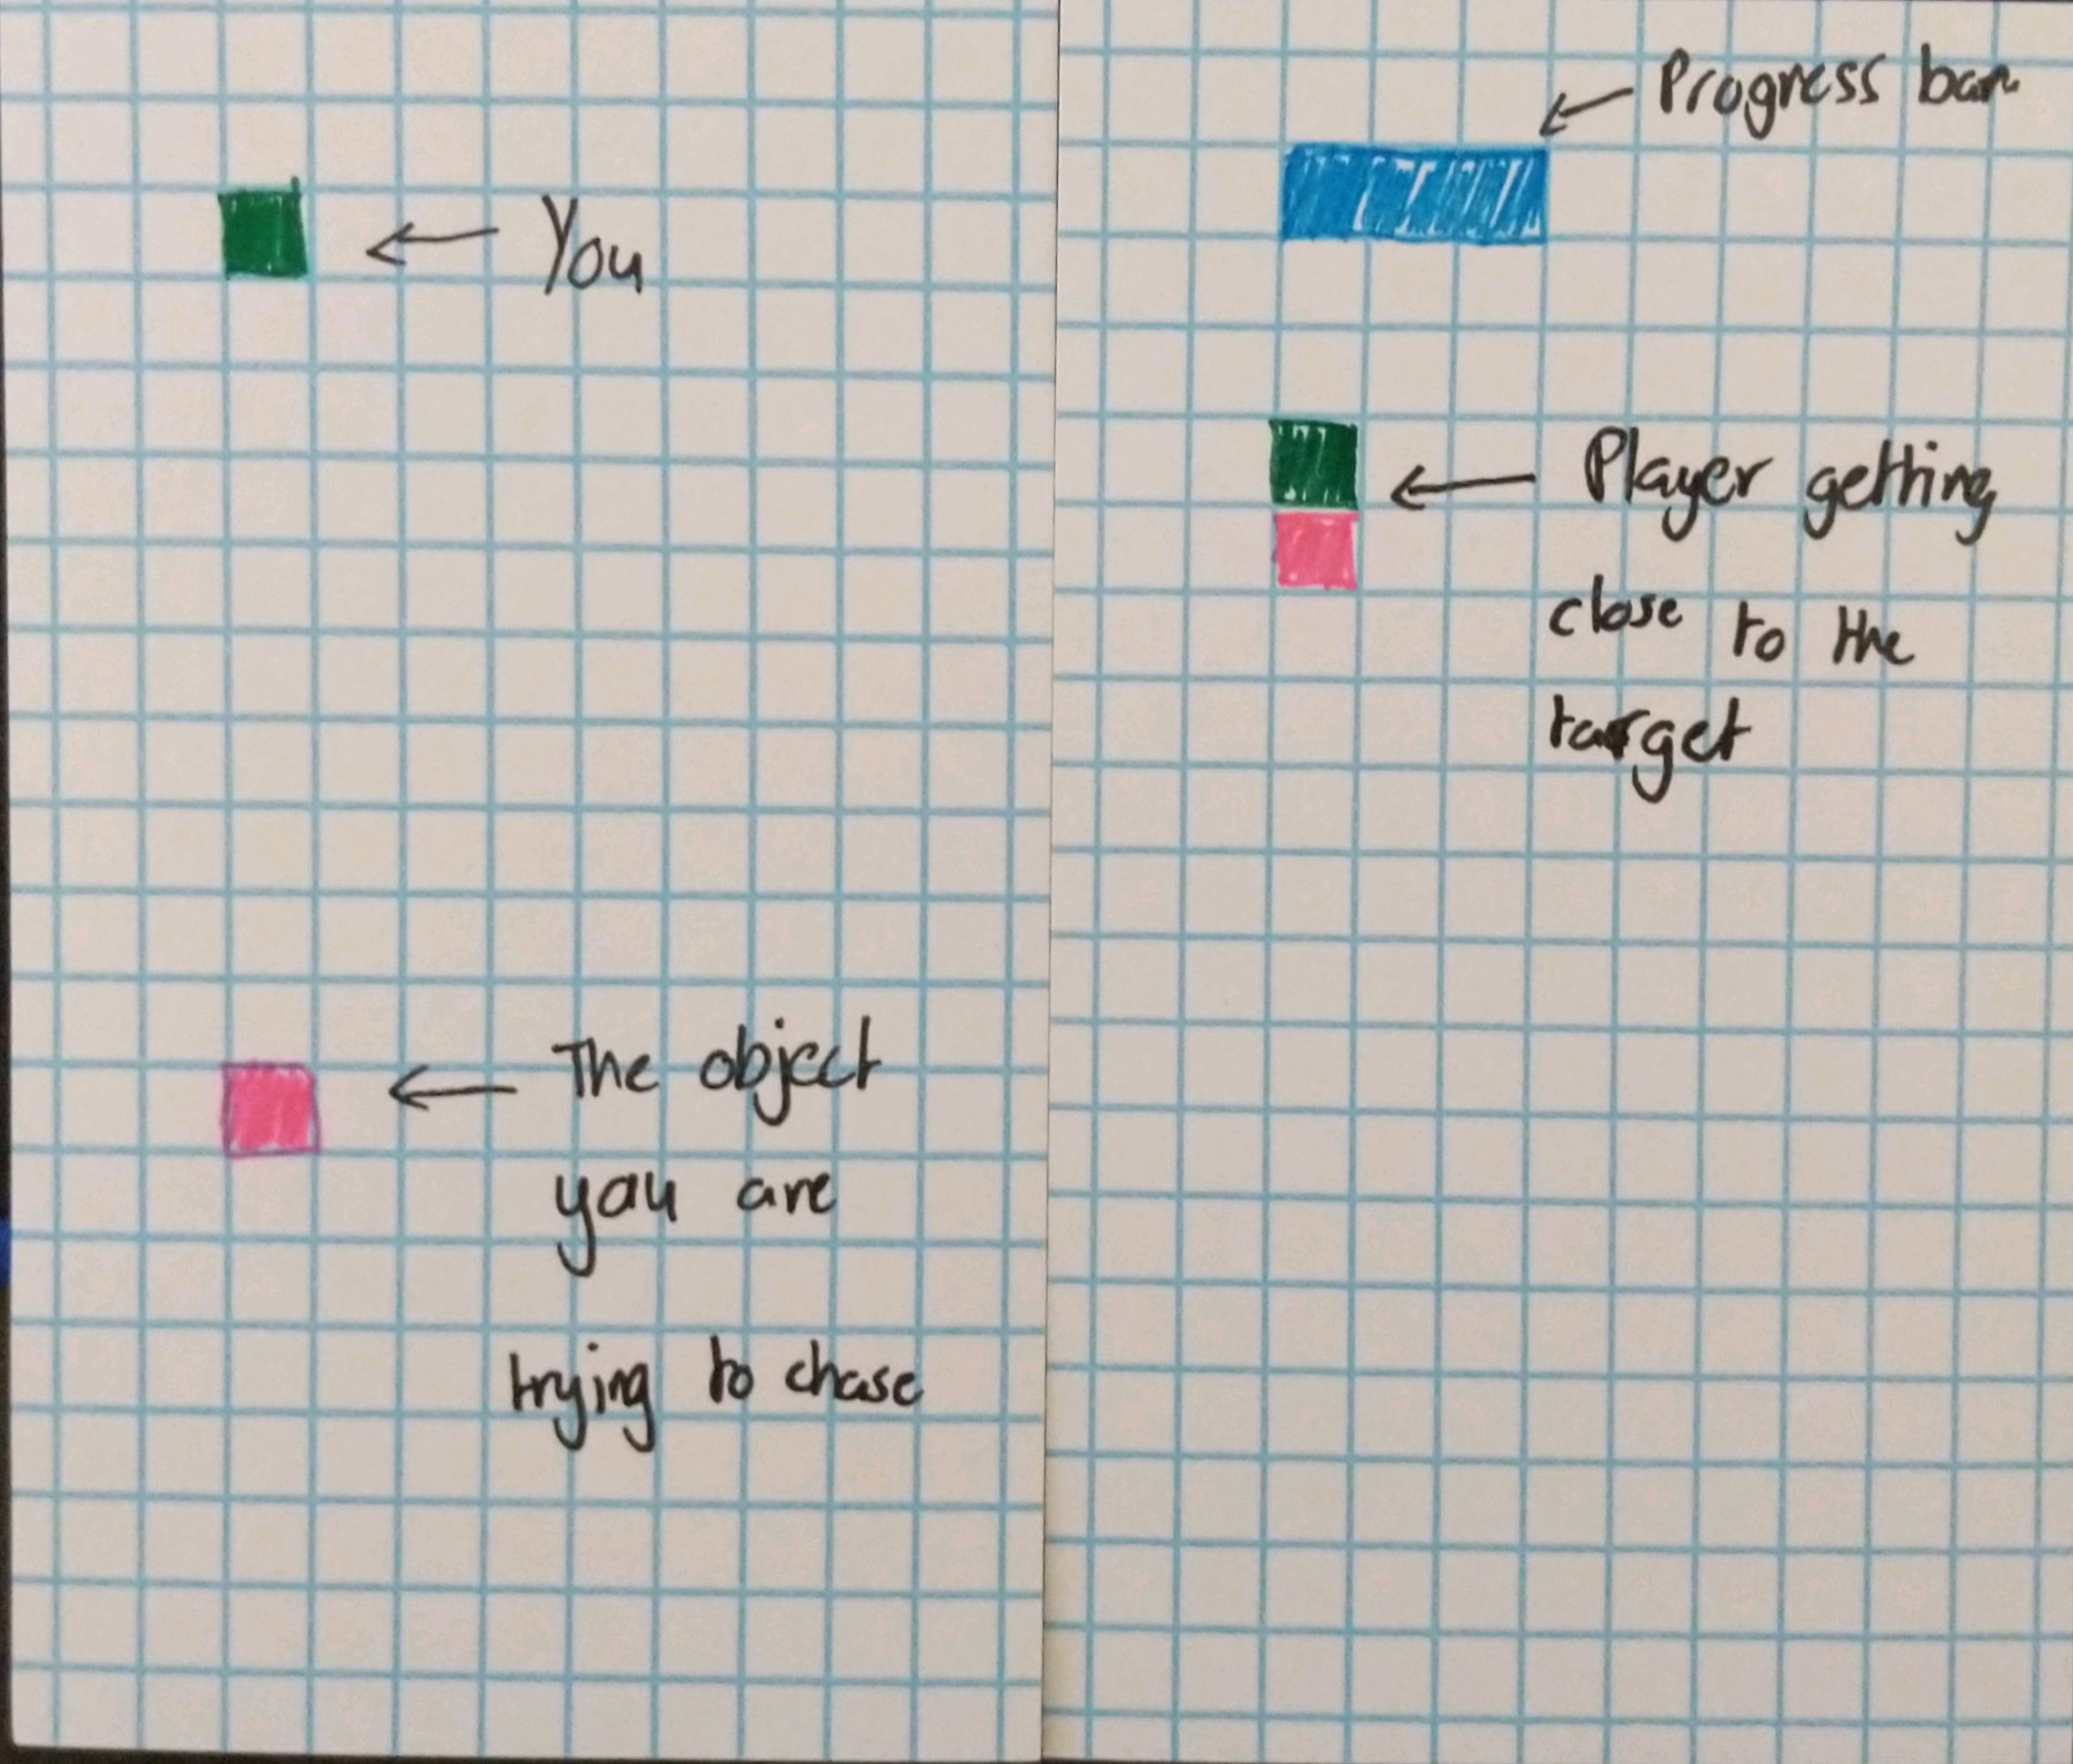 You
The object
you are
trying to chase
Progress bar
Player getting
close to the
target